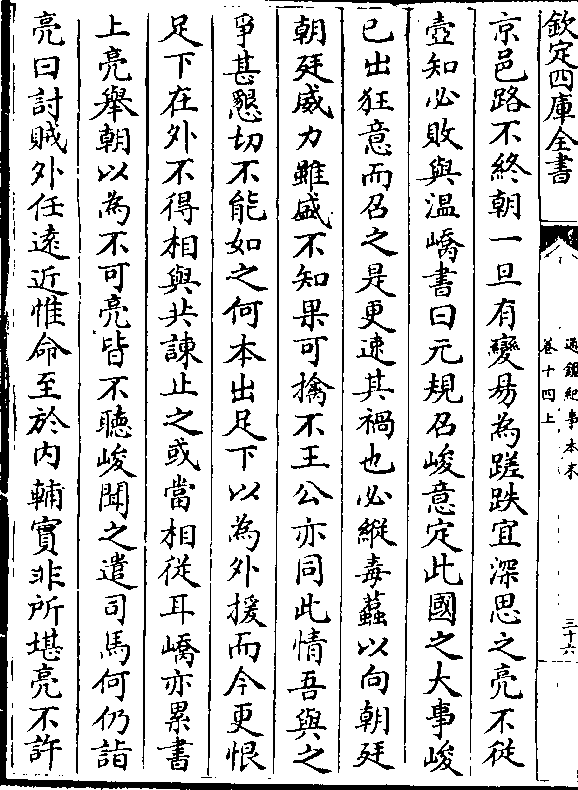 欽定四庫全書
通鑑紀事本末
卷十四上
三十六
京邑路不終朝一旦有變易為蹉跌宜深思之亮不從
壼知必敗與溫嶠書曰元規召峻意定此國之大事峻
已出狂意而召之是更速其禍也必縱毒蠚以向朝廷
朝廷威力雖盛不知果可擒不王公亦同此情吾與之
爭甚懇切不能如之何本出足下以為外援而今更恨
足下在外不得相與共諫止之或當相從耳嶠亦累書
上亮舉朝以為不可亮皆不聽峻聞之遣司馬何仍詣
亮曰討賊外任遠近惟命至於內輔實非所堪亮不許